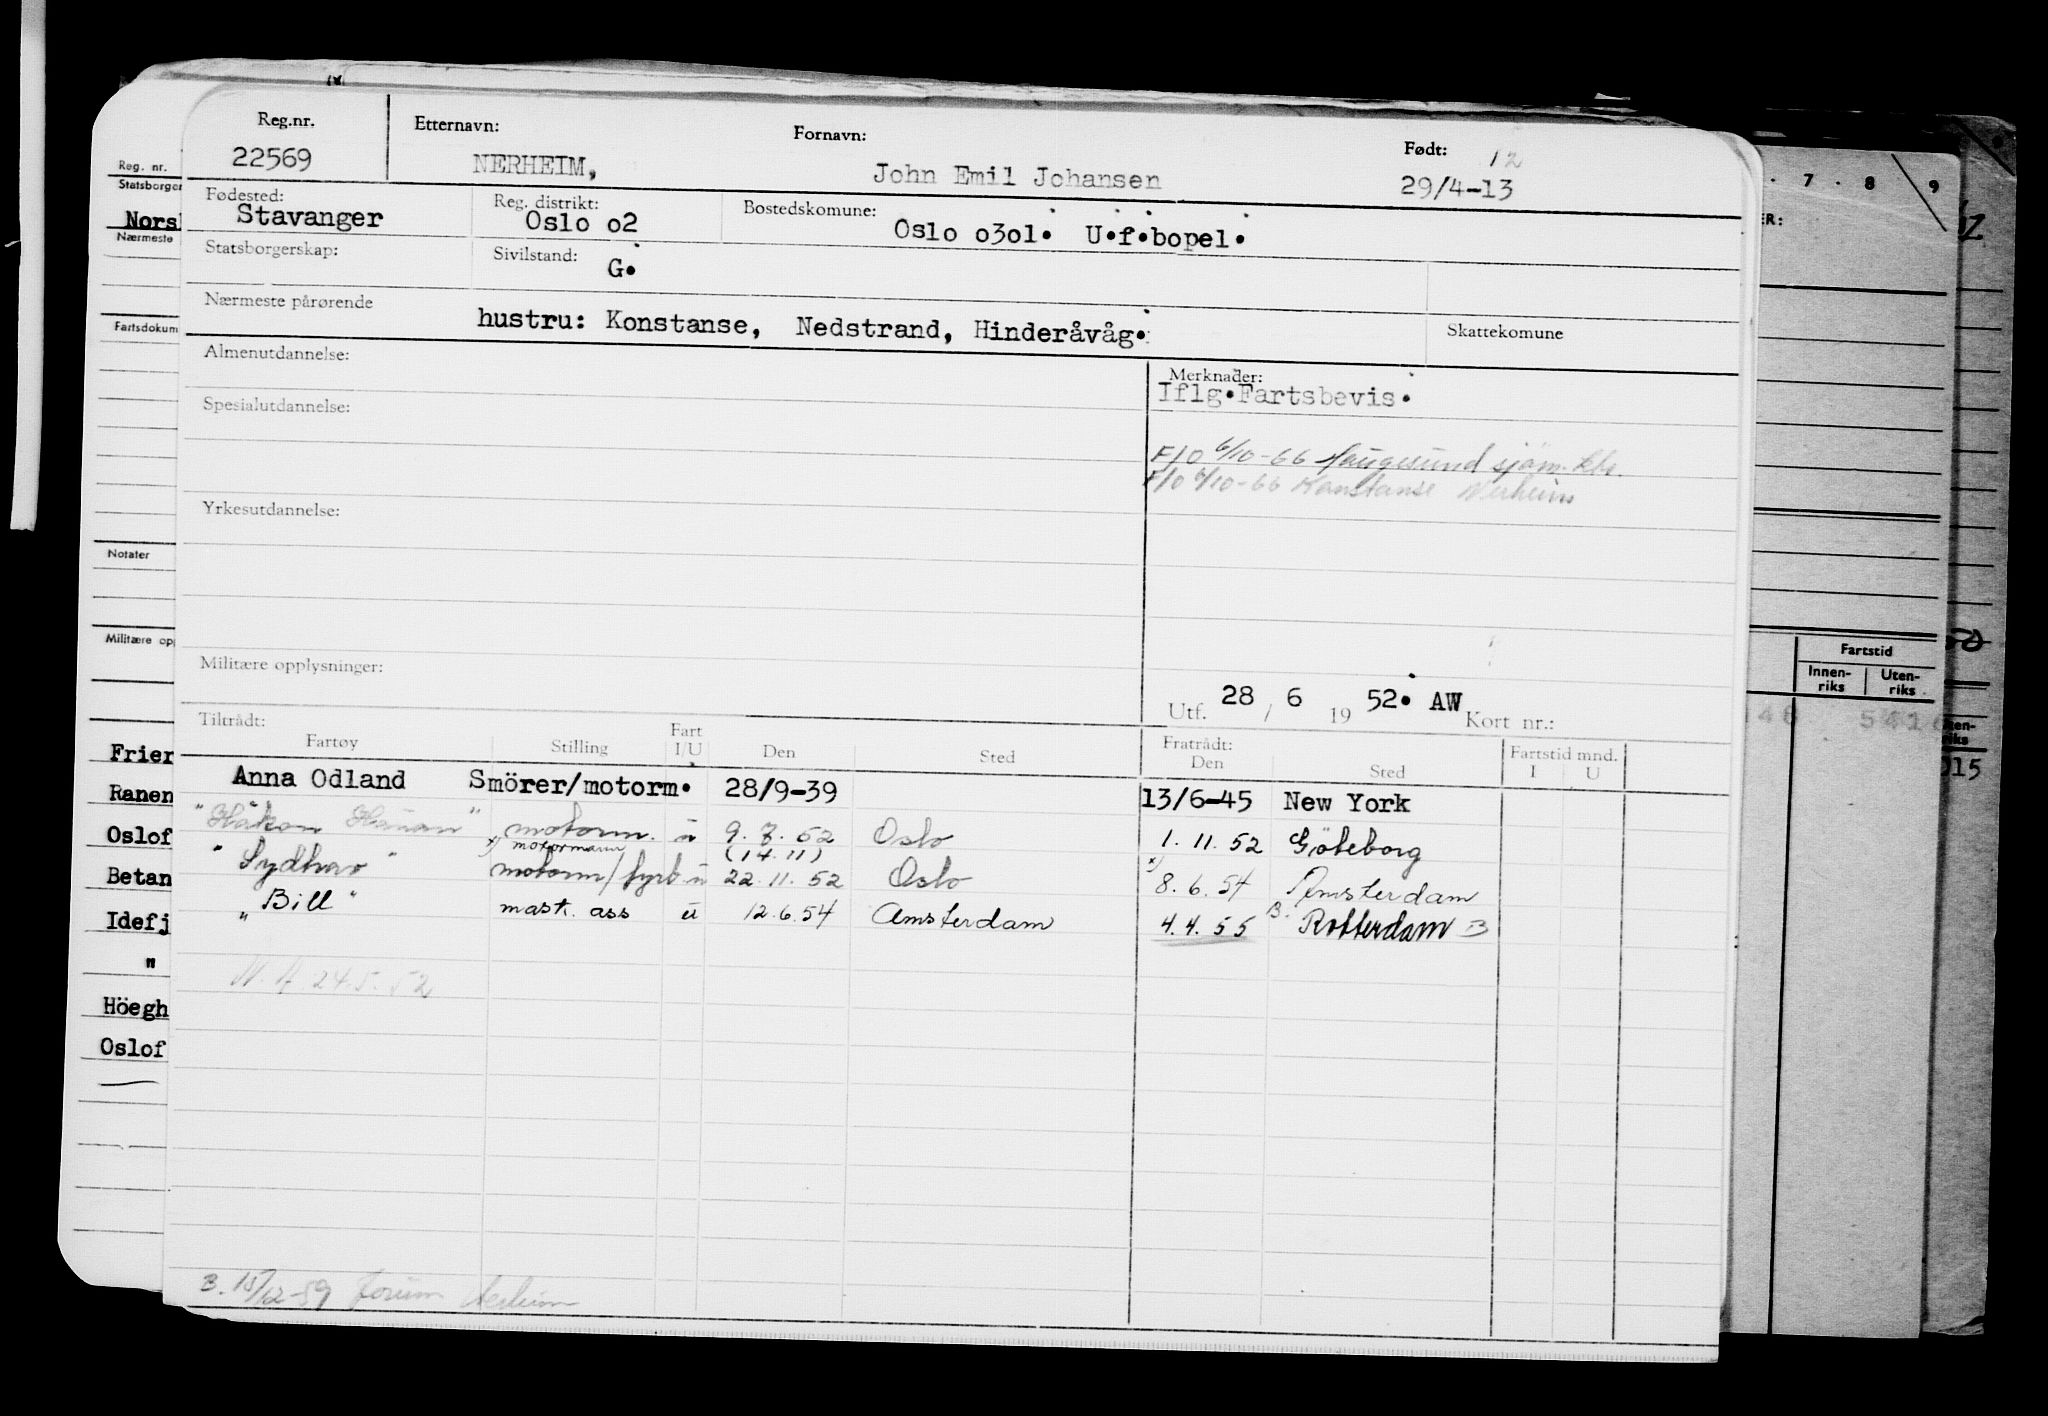 Reg.nr. Etternavn: Fornavn: Født: 12
22569 NERHEIM, John Emil Johansen 29/4-13
Fødested: Reg. distrikt: Bostedskomune:
Stavanger Oslo o2 Oslo o3o1. U.f.bopel.
Statsborgerskap: Sivilstand: G.
Nærmeste pårørende
hustru: Konstanse, Nedstrand, Hinderåvåg. Skattekomune
Almenutdannelse: Merknader:
Iflg.Fartsbevis.
Spesialutdannelse:
F/O 6/10-66 Haugesund sjøm.
F/O 6/10-66 Konstanse Nerheim
Yrkesutdannelse:
Militære opplysninger:
Utf. 28 / 6 19 52. AW Kort nr.:
Tiltrådt: Fratrådt: Fartstid mnd.
Fartøy Stilling Fart I/U Den Sted Den Sted I U
Anna Odland Smörer/motorm. 28/9-39 13/6-45 New York
"Håkon Hauan" motorm. u 9.7.52 Oslo 1.11.52 Göteborg
x) motormann (14.11)
"Sydhav" motorm/fyrb u 22.11.52 Oslo x) 8.6.54 Amsterdam
"Bill" mask. ass u 12.6.54 Amsterdam 4.4.55 B. Rotterdam B
N.A. 24.5.52
B. 15/12-59 Nerheim
Reg. nr.
Statsborger
Nors
Nærmeste
Fartsdokum
Notater
Militære opp
Frier
Ranen
Oslof
Betan
Idefj
"
Höegh
Oslof
7 . 8 9
ER:
Fartstid
Innen-riks Uten-riks
146 541
riks
015